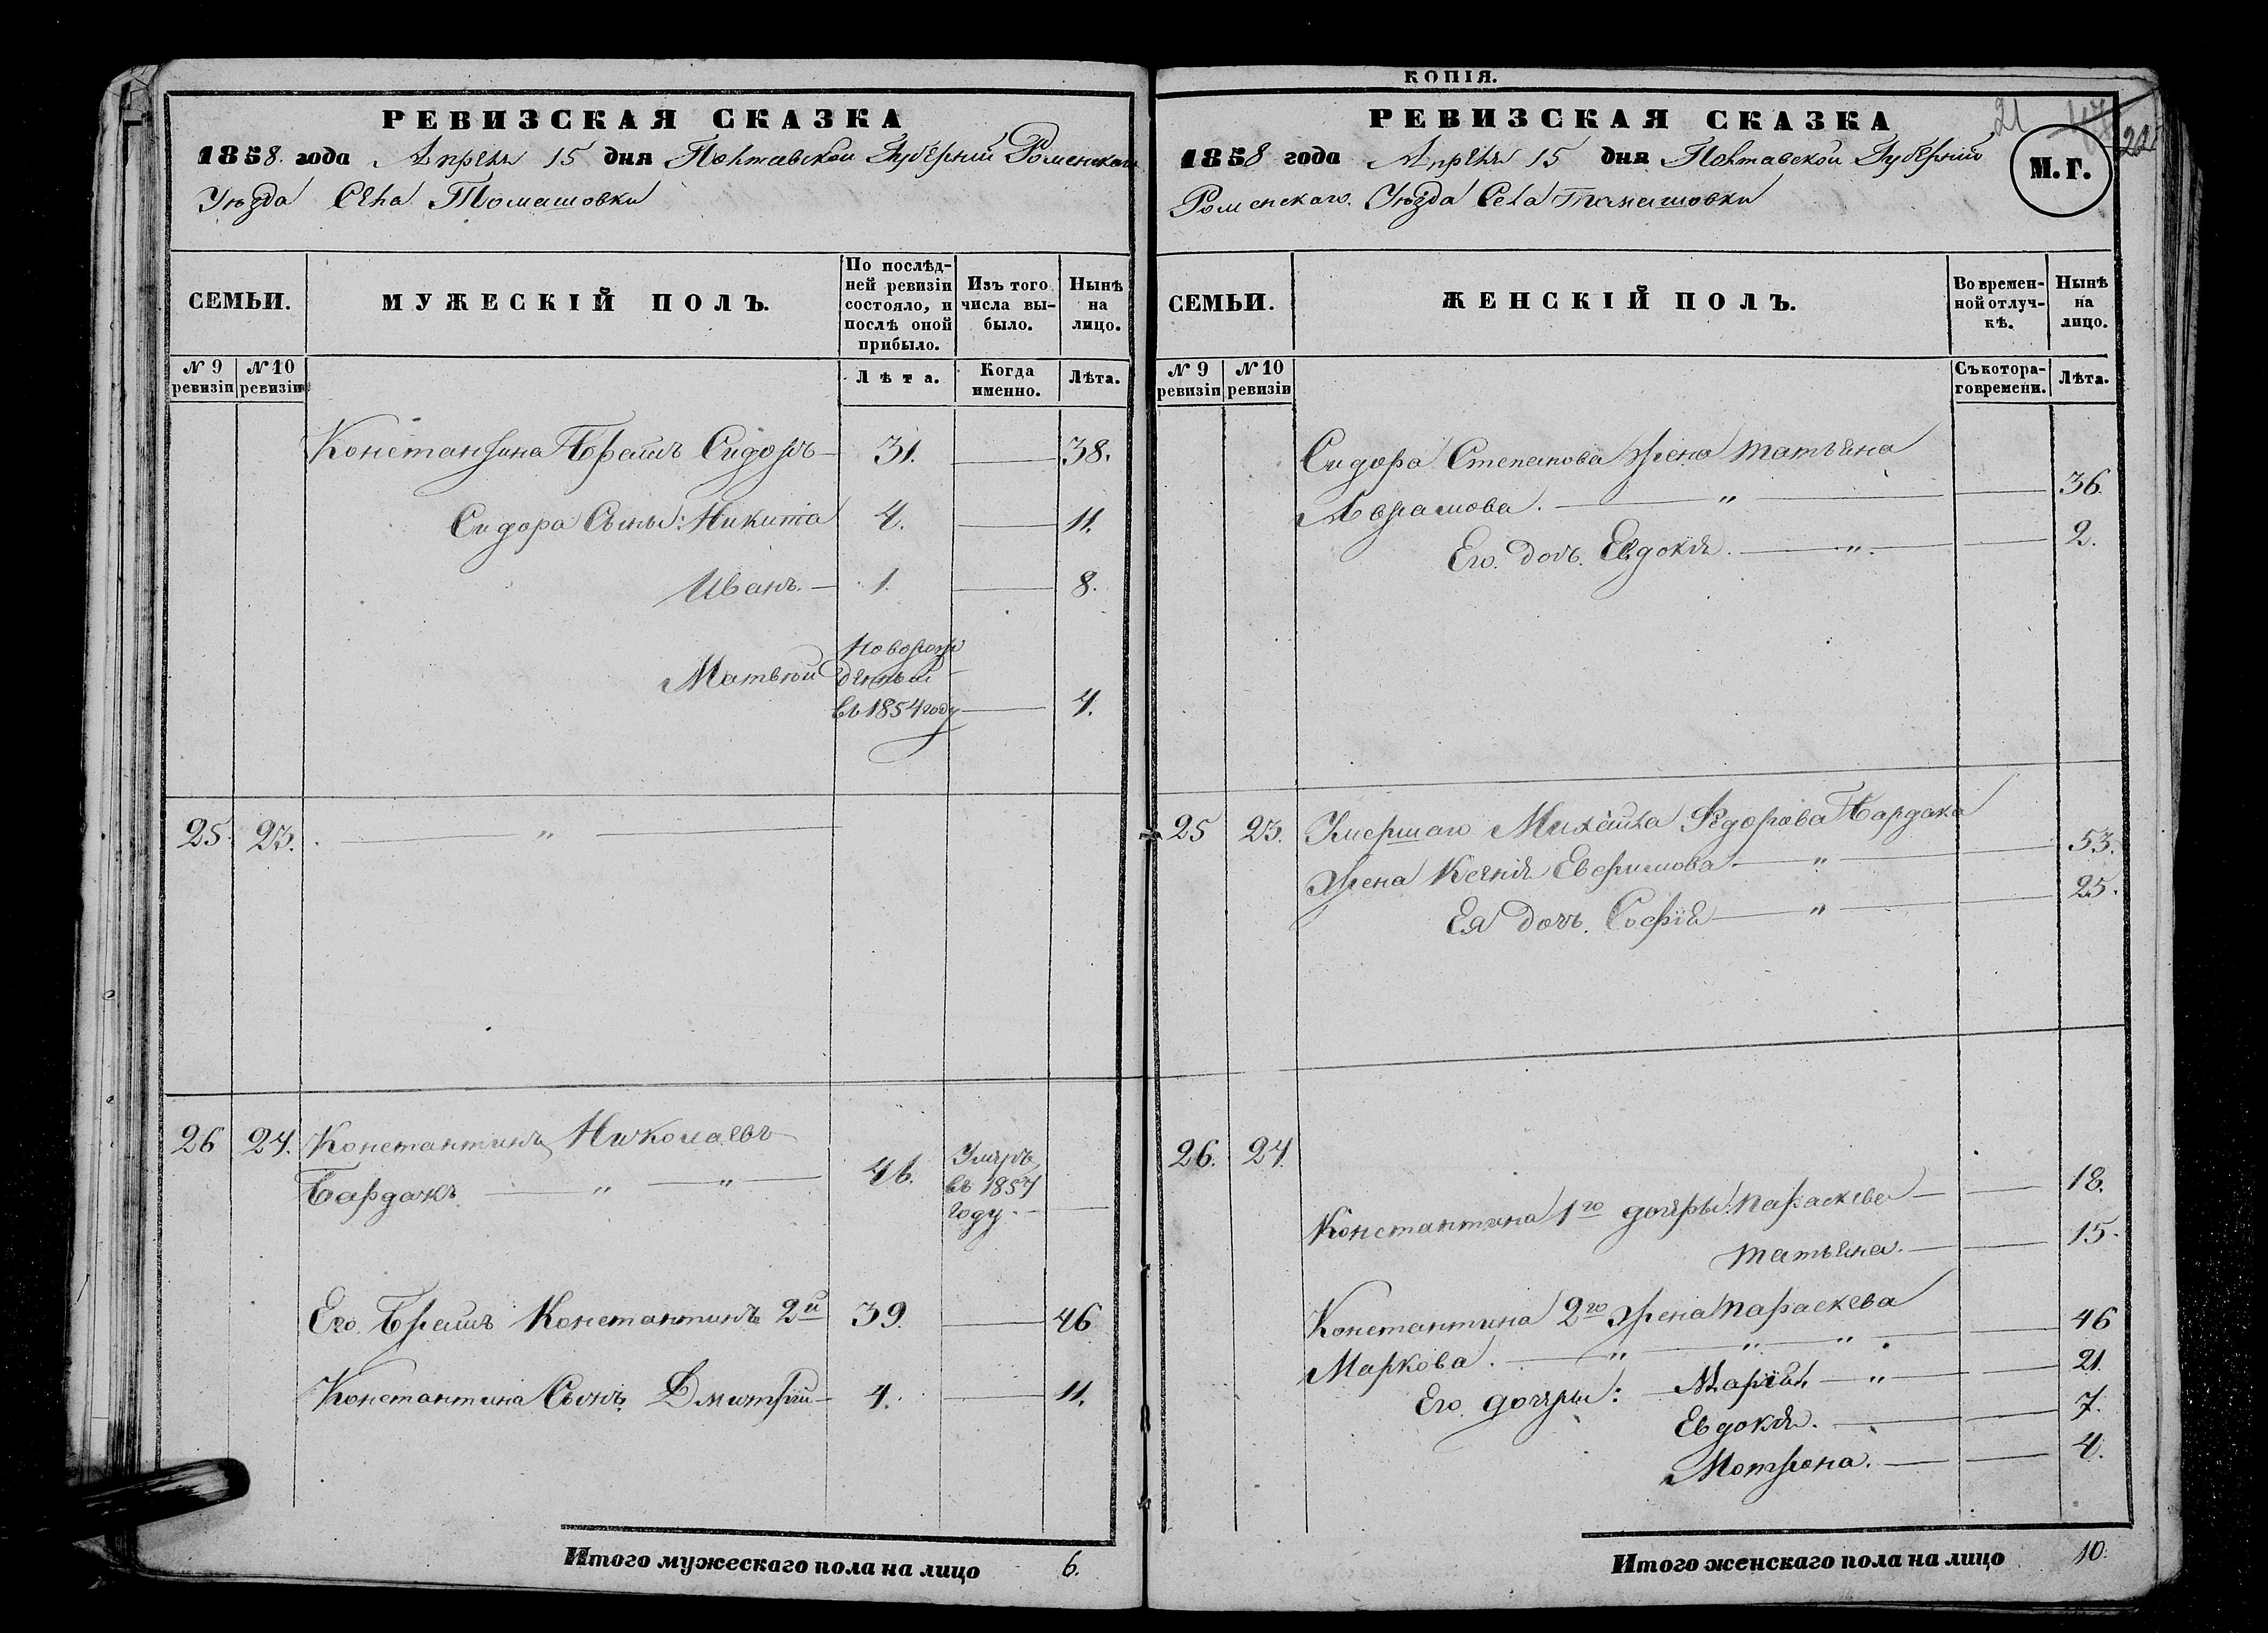 РЕВИЗСКАЯ СКАЗКА
1858. года Апреля 15 дня Полтавской Губерніи Роменскаго
Уѣзда Села Томашовки
СЕМЬИ.
МУЖЕСКІЙ ПОЛЪ.
По послѣд-
ней ревизіи
состояло, и
послѣ оной
прибыло.
Изъ того
числа вы-
было.
Нынѣ
на
лицо.
№ 9 ревизіи
№ 10 ревизіи
Лѣта.
Когда
именно.
Лѣта.
Константина Братъ Сидоръ — 31. — 38.
Сидора Сыны: Никита 4. — 11.
Иванъ. — 1. — 8.
Новорож
Матвѣй денный
въ 1854 году — 4.
25. 23. — " —
26 24. Константинъ Николаевъ
Бардакъ — " — " — 46. Умеръ
въ 1857
году. —
Его Братъ Константинъ 2й 39. — 46
Константина Сынъ Дмитрій — 4. — 11.
Итого мужескаго пола на лицо 6.
КОПІЯ.
РЕВИЗСКАЯ СКАЗКА
21
22
1858 года Апреля 15 дня Полтавской Губерніи
М. Г.
Роменскаго. Уѣзда Села Томашовки
СЕМЬИ.
ЖЕНСКІЙ ПОЛЪ.
Во времен-
ной отлуч-
кѣ.
Нынѣ
на
лицо.
№ 9 ревизіи
№ 10 ревизіи
Съ котора-
го времени.
Лѣта.
Сидора Степанова жена Татьяна
Аврамова. — " — 36.
Его дочь Евдокія. — " — 2.
25 23. Умершаго Михайла Федорова Бардака
Жена Ксенія Евфимова — " — 53.
Ея дочь. Софія — " — 25.
26. 24.
Константина 1го дочѣры: Параскева — 18.
Татьяна. — 15.
Константина 2го жена Параскева
Маркова. — " — " — " . — 46
Его дочѣры: Марія — " — 21.
Евдокія. — 7.
Мотрона. — 4.
Итого женскаго пола на лицо 10.